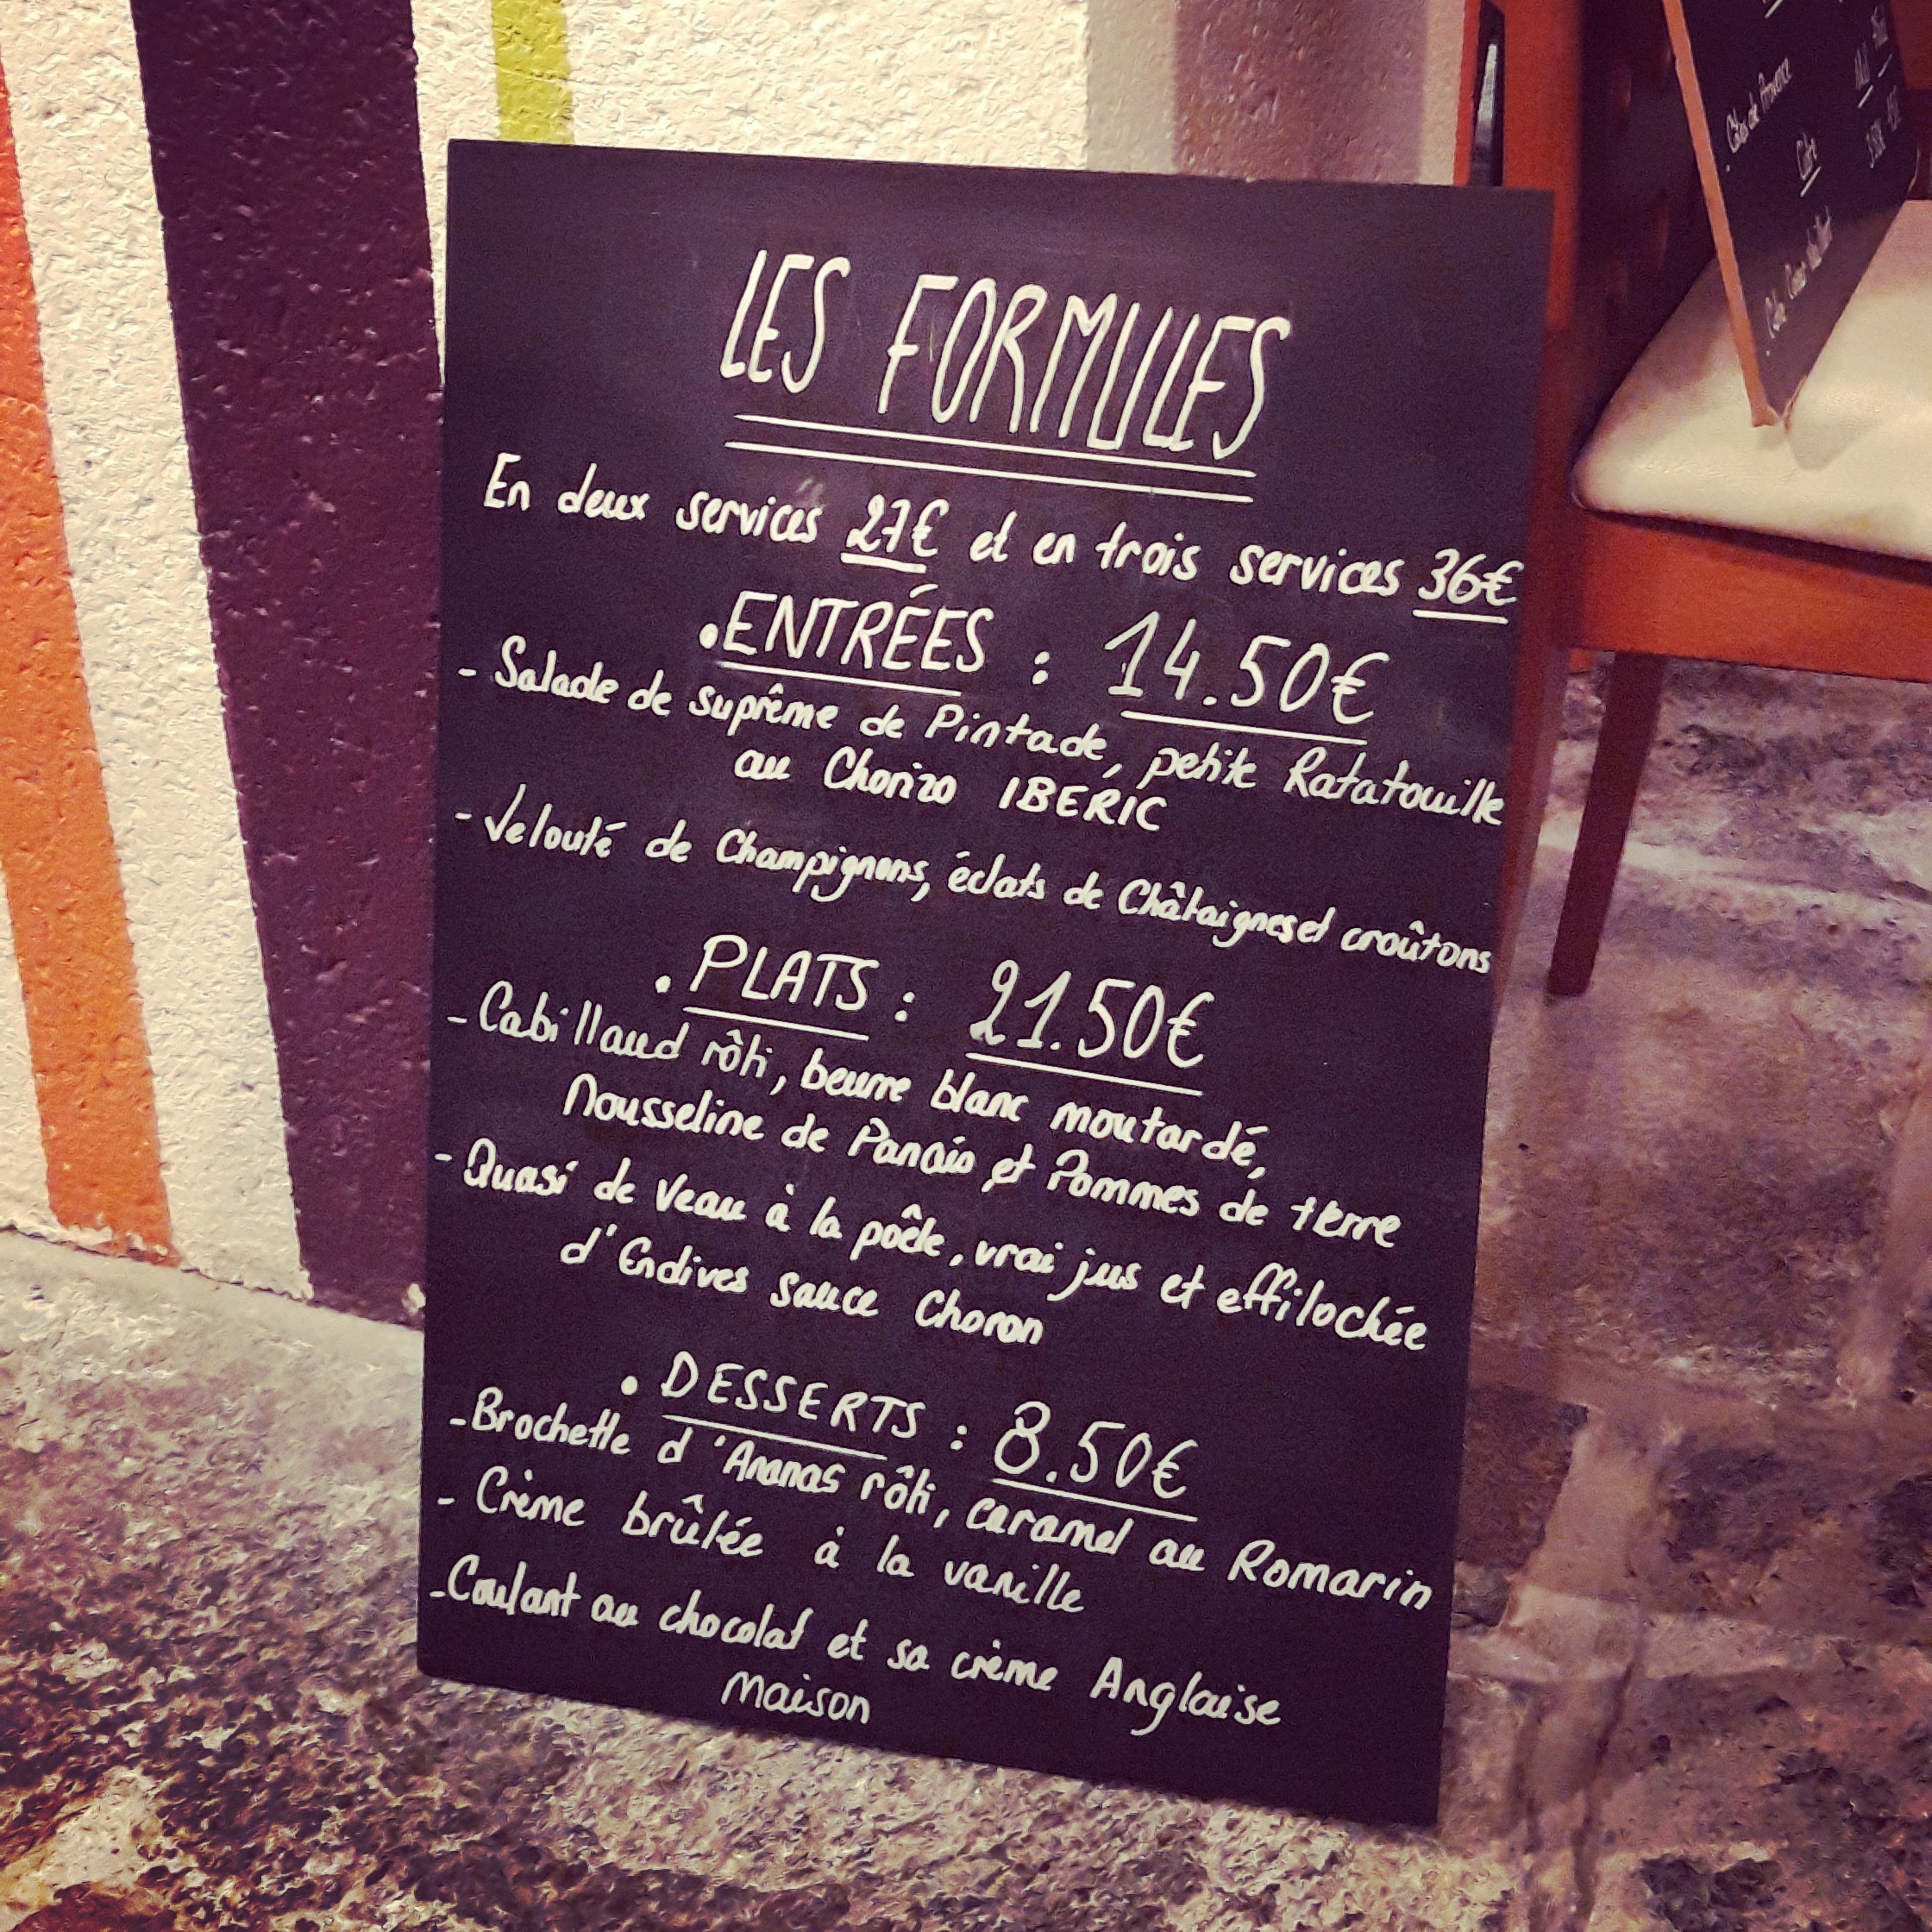 LES FORMULES
En deux services 27€ et en trois services 36€
.ENTRÉES : 14.50€
- Salade de suprême de Pintade, petite Ratatouille
au Chorizo IBERIC
- Velouté de Champignons, éclats de Châtaignes et croûtons
. PLATS : 21.50€
- Cabillaud rôti, beurre blanc moutardé,
Mousseline de Panais et Pommes de terre
- Quasi de Veau à la poêle, vrai jus et effilochée
d'Endives sauce Choron
. DESSERTS : 8.50€
- Brochette d'Ananas rôti, caramel au Romarin
- Crème brûlée à la vanille
- Coulant au chocolat et sa crème Anglaise
Maison
. Côtes de Provence